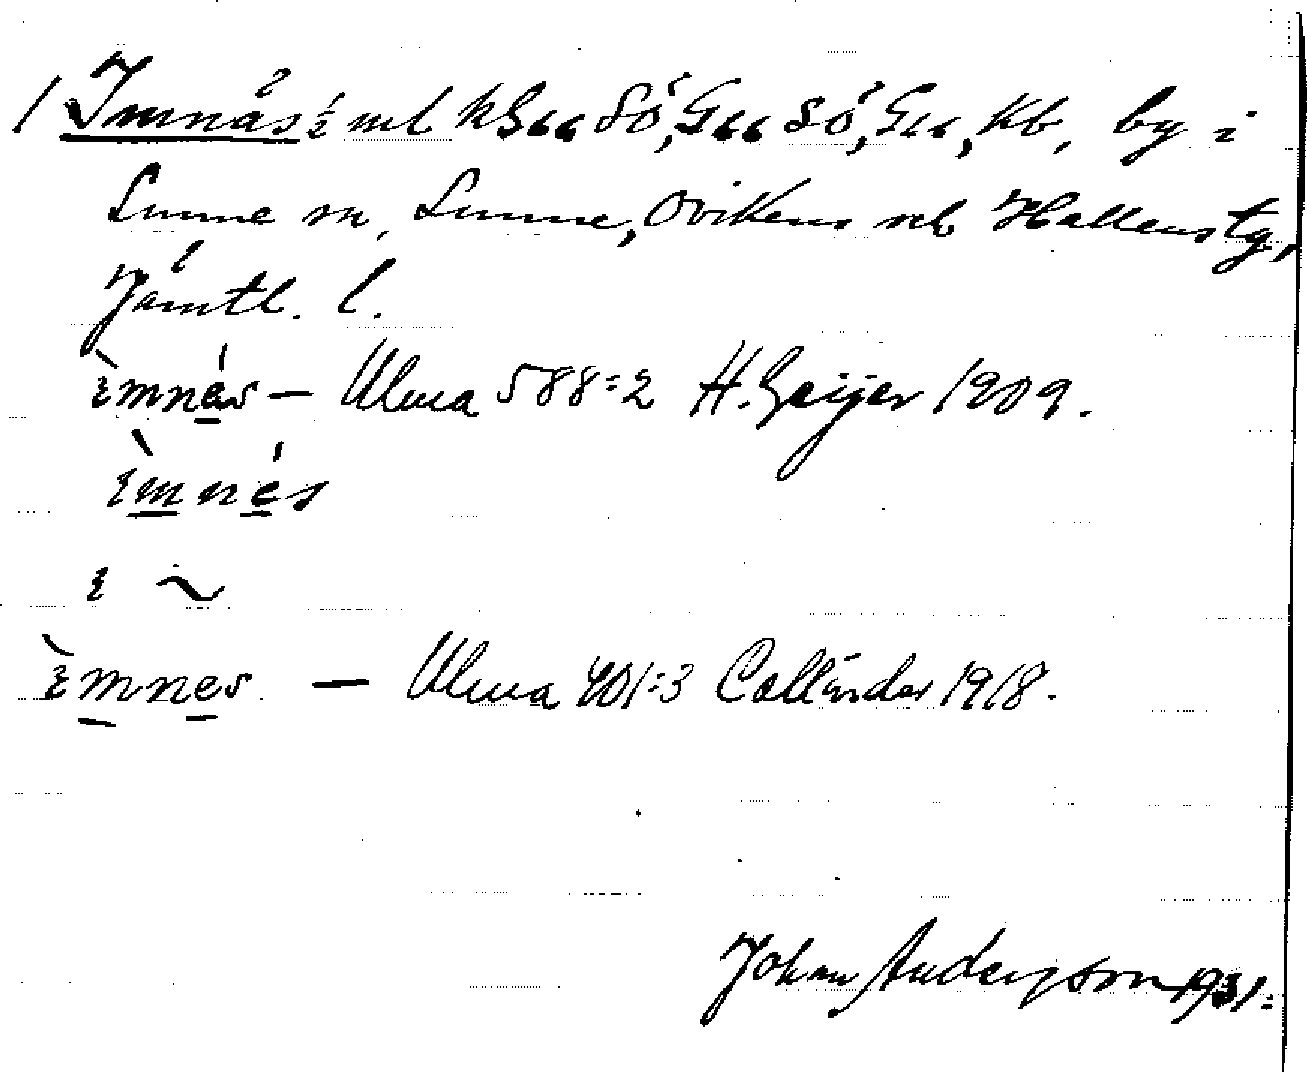 1 Imnäs ½ ml kG66 SÖ, G66 SÖ, G66, Kb, by i
Sunne sn, Sunne, Ovikens o Hallens tg,
Jämtl. l.
ìmnés — Ulma 588:2 H. Geijer 1909.
ìmnés
i ~
ìmnes. — Ulma 401:3 Calleander 1918.
Johan Anderson 1931.